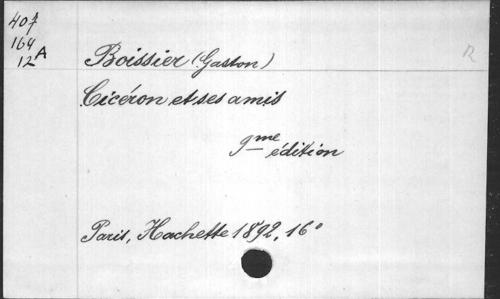 407
164
12 A
Boissier (Gaston)
R
Cicéron et ses amis
9me édition
Paris, Hachette 1892, 16°